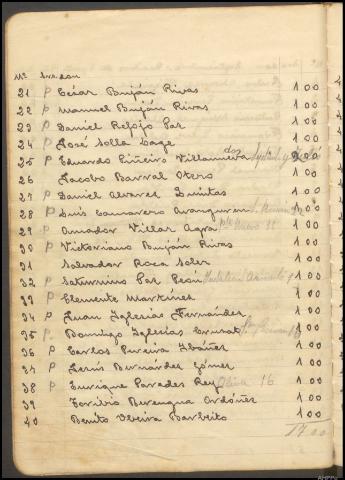 21 P César Buján Rivas 1 00
22 P Manuel Buján Rivas 1 00
23 P Daniel Refojo Par 1 00
24 P José Solla Lage 1 00
25 P Eduardo Piñeiro Villanueva dos 2 00
26 Jacobo Barral Otero 1 00
27 P Daniel Alvarez Quintas 1 00
28 P Luis Camarero Aranguren 1 00
29 P Amador Villar Agra 1 00
30 P Victoriano Buján Rivas 1 00
31 Salvador Roca Soler 1 00
32 P Saturnino Par León 1 00
33 P Clemente Martínez 1 00
34 P Juan Iglesias Fernández 1 00
35 P. Domingo Iglesias 1 00
36 P Carlos Pereira Ibáñez 1 00
37 P Jesús Bernardez Gómez 1 00
38 P Enrique Paredes Rey Oliva 16 1 00
39 Toribio Berengua Ordóñez 1 00
40 Benito Barbeito 1 00
17 00